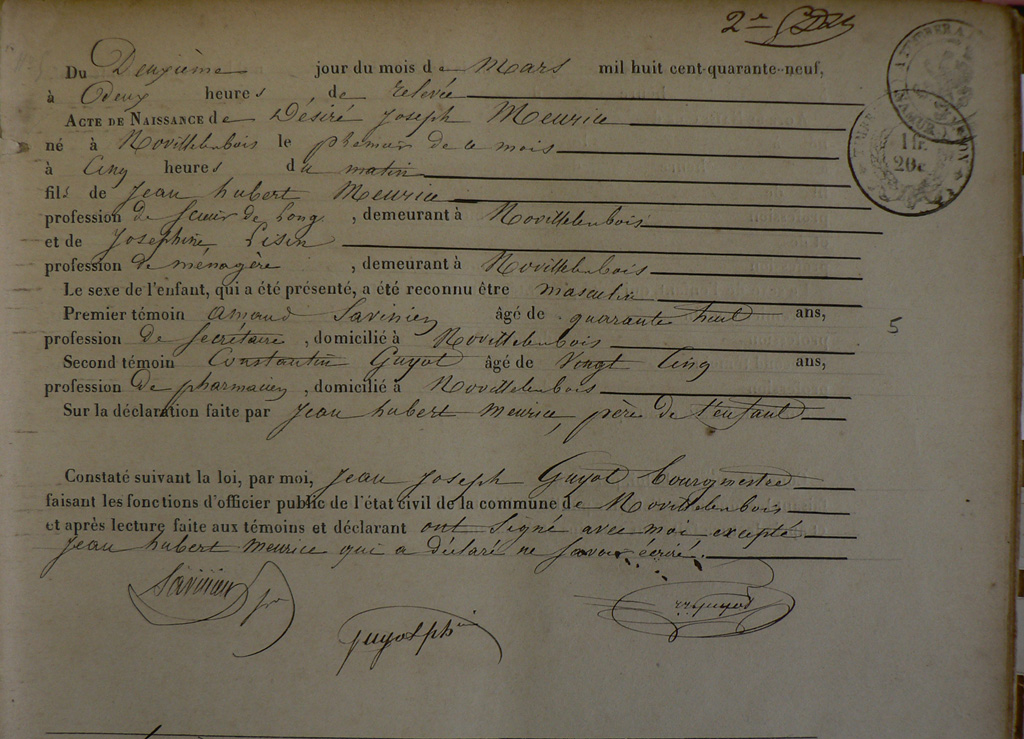 2e
Du Deuxième jour du mois de Mars mil huit cent-quarante-neuf,
à deux heures de relevée
ACTE DE NAISSANCE de Désiré Joseph Meurice
né à Novillelenbois le premier de ce mois
à Cinq heures du matin
fils de Jean hubert Meurice
profession de Scieur de Long, demeurant à Novillelenbois
et de Josephine Pisin
profession de ménagère, demeurant à Novillelenbois
Le sexe de l'enfant, qui a été présenté, a été reconnu être masculin
Premier témoin Amand Savinien âgé de quarante huit ans,
profession de Secrétaire, domicilié à Novillelenbois
5
Second témoin Constantin Guyot âgé de Vingt Cinq ans,
profession de pharmacien, domicilié à Novillelenbois
Sur la déclaration faite par Jean hubert Meurice, père de l'enfant
Constaté suivant la loi, par moi, Jean Joseph Guyot bourgmestre
faisant les fonctions d'officier public de l'état civil de la commune de Novillelenbois
et après lecture faite aux témoins et déclarant ont Signé avec moi excepté
Jean hubert Meurice qui a déclaré ne Savoir écrire.
Savinien
Guyot ph
NAMUR
1 fr.
20c